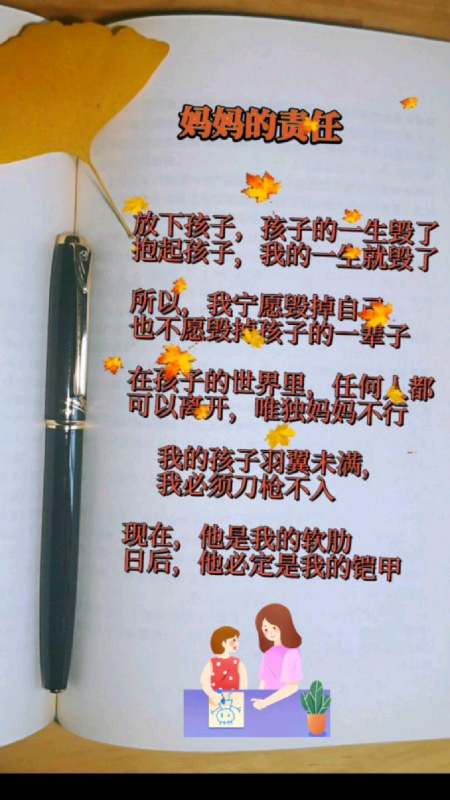 妈妈的责任
放下孩子，孩子的一生毁了
抱起孩子，我的一生就毁了
所以，我宁愿毁掉自己
也不愿毁掉孩子的一辈子
在孩子的世界里，任何人都
可以离开，唯独妈妈不行
我的孩子羽翼未满，
我必须刀枪不入
现在，他是我的软肋
日后，他必定是我的铠甲